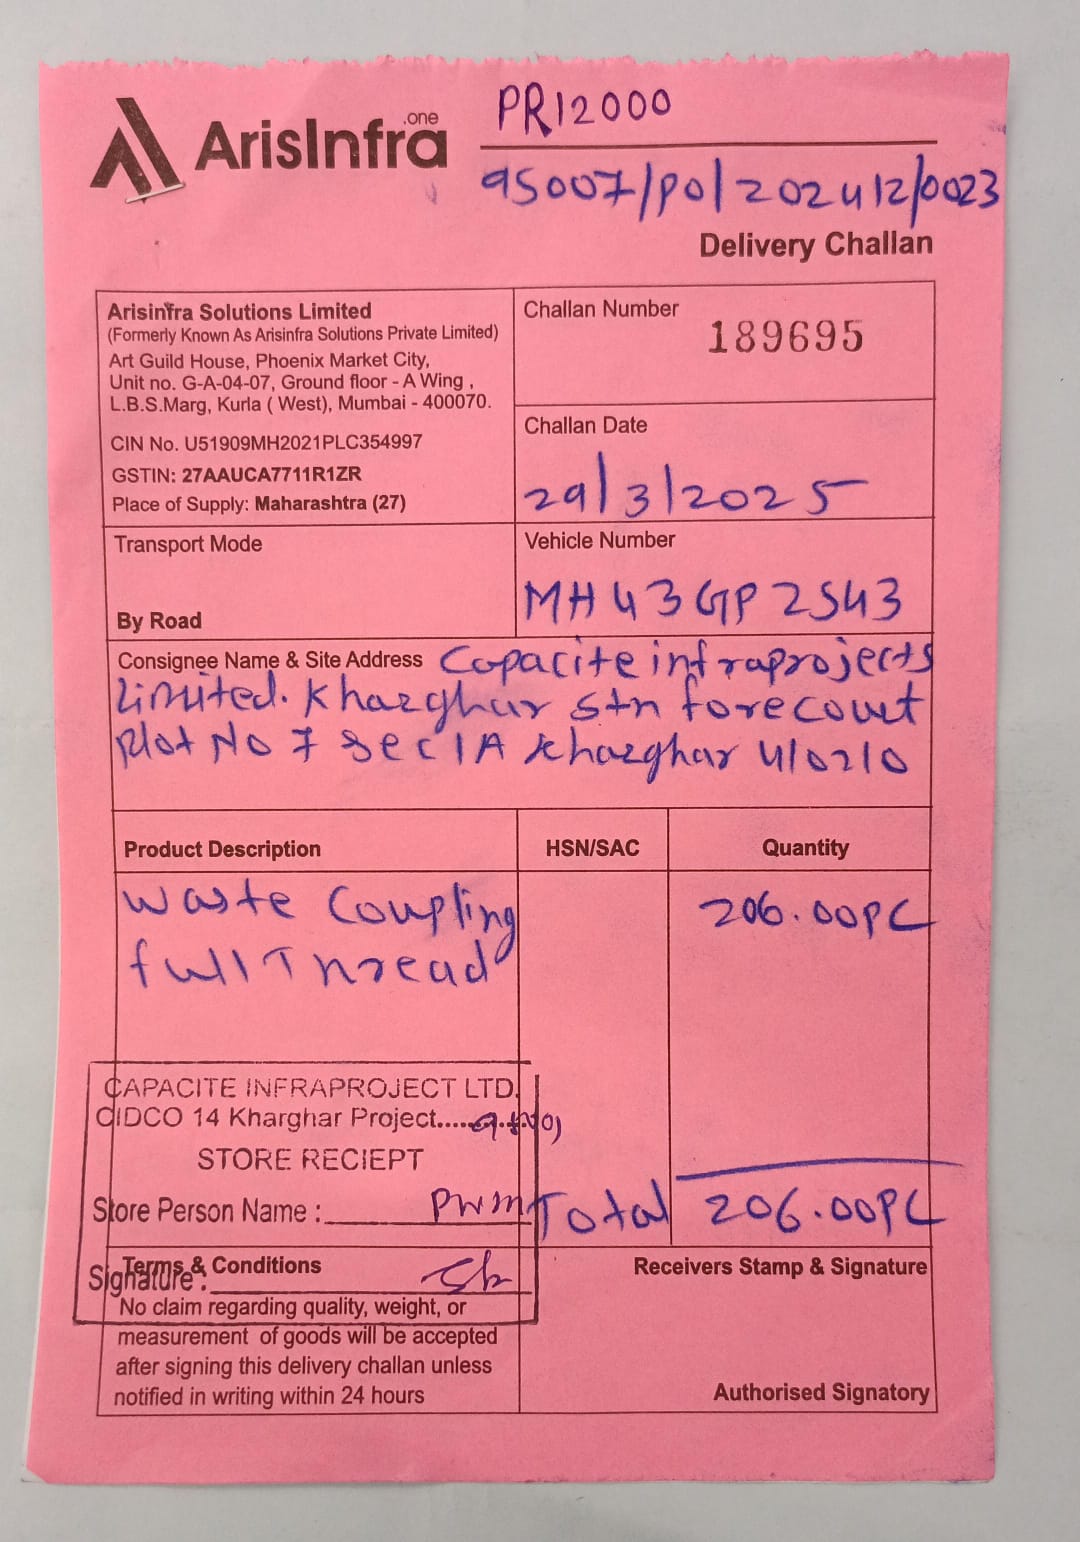 .one
ArisInfra
PR12000
95007/PO/202412/0023
Delivery Challan
Arisinfra Solutions Limited
(Formerly Known As Arisinfra Solutions Private Limited)
Art Guild House, Phoenix Market City,
Unit no. G-A-04-07, Ground floor - A Wing ,
L.B.S.Marg, Kurla ( West), Mumbai - 400070.
CIN No. U51909MH2021PLC354997
GSTIN: 27AAUCA7711R1ZR
Place of Supply: Maharashtra (27)
Challan Number
189695
Challan Date
29/3/2025
Transport Mode
By Road
Vehicle Number
MH43GP2543
Consignee Name & Site Address Capacite infraprojects
Limited. Kharghar stn forecourt
plot No 7 sec 1A kharghar 410210
Product Description HSN/SAC Quantity
Waste Coupling 206.00PC
full Thread
CAPACITE INFRAPROJECT LTD.
CIDCO 14 Kharghar Project.....
STORE RECIEPT
Store Person Name : PWM
Total 206.00PC
Signature :
Terms & Conditions
No claim regarding quality, weight, or
measurement of goods will be accepted
after signing this delivery challan unless
notified in writing within 24 hours
Receivers Stamp & Signature
Authorised Signatory